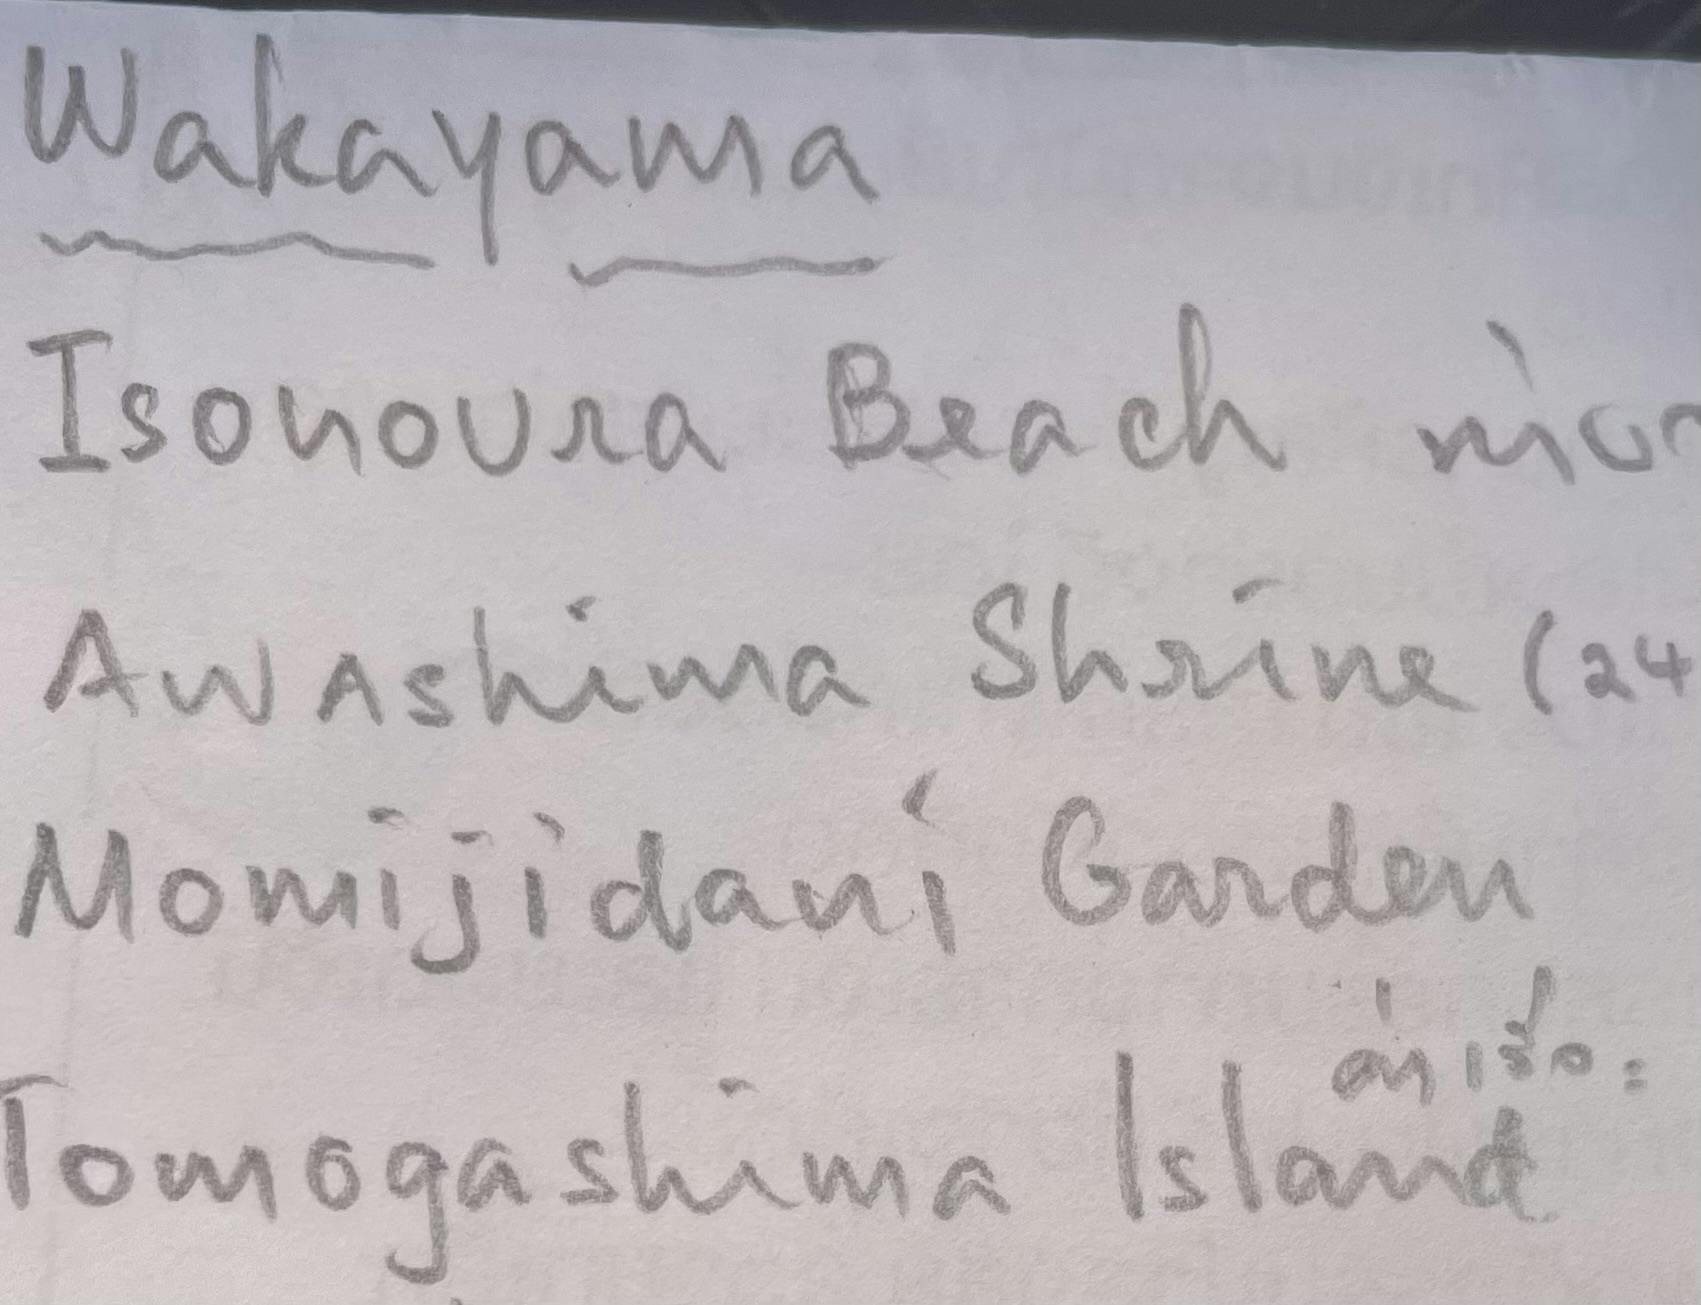 Wakayama
Isonoura Beach
Awashima Shrine (24
Momijidani Garden
ค่าเรือ:
Tomogashima Island